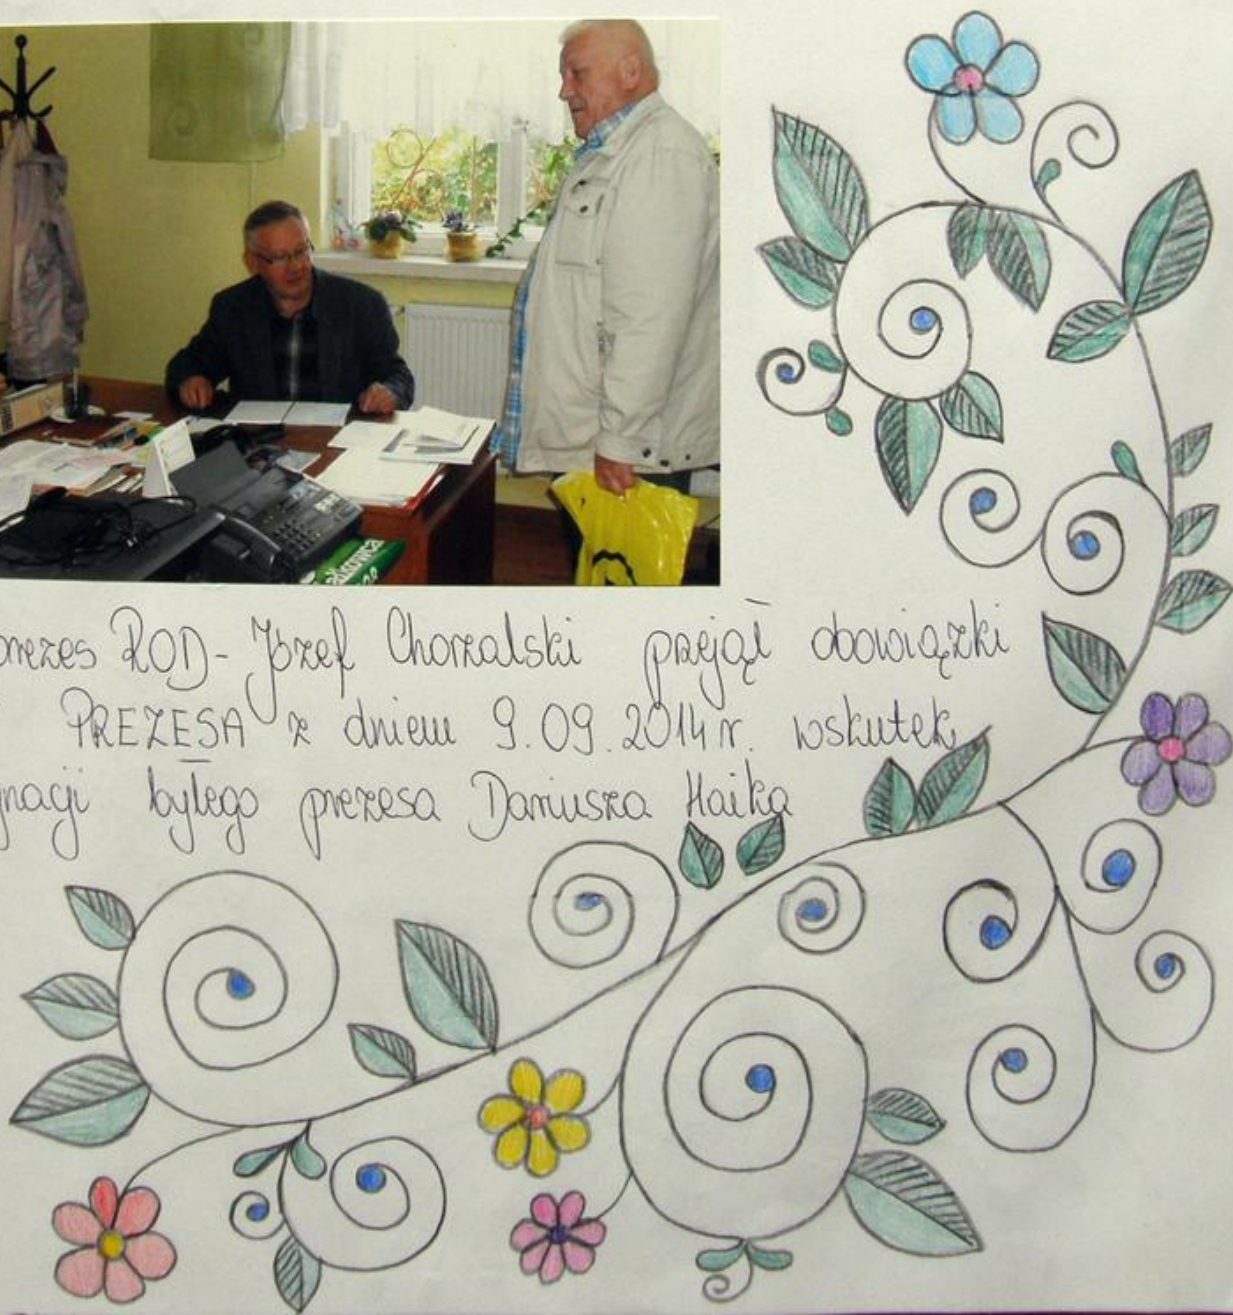 prezes ROD - Józef Chorzalski przejął obowiązki
PREZESA z dniem 9.09.2014 r. wskutek
gnacji byłego prezesa Dariusza Haika